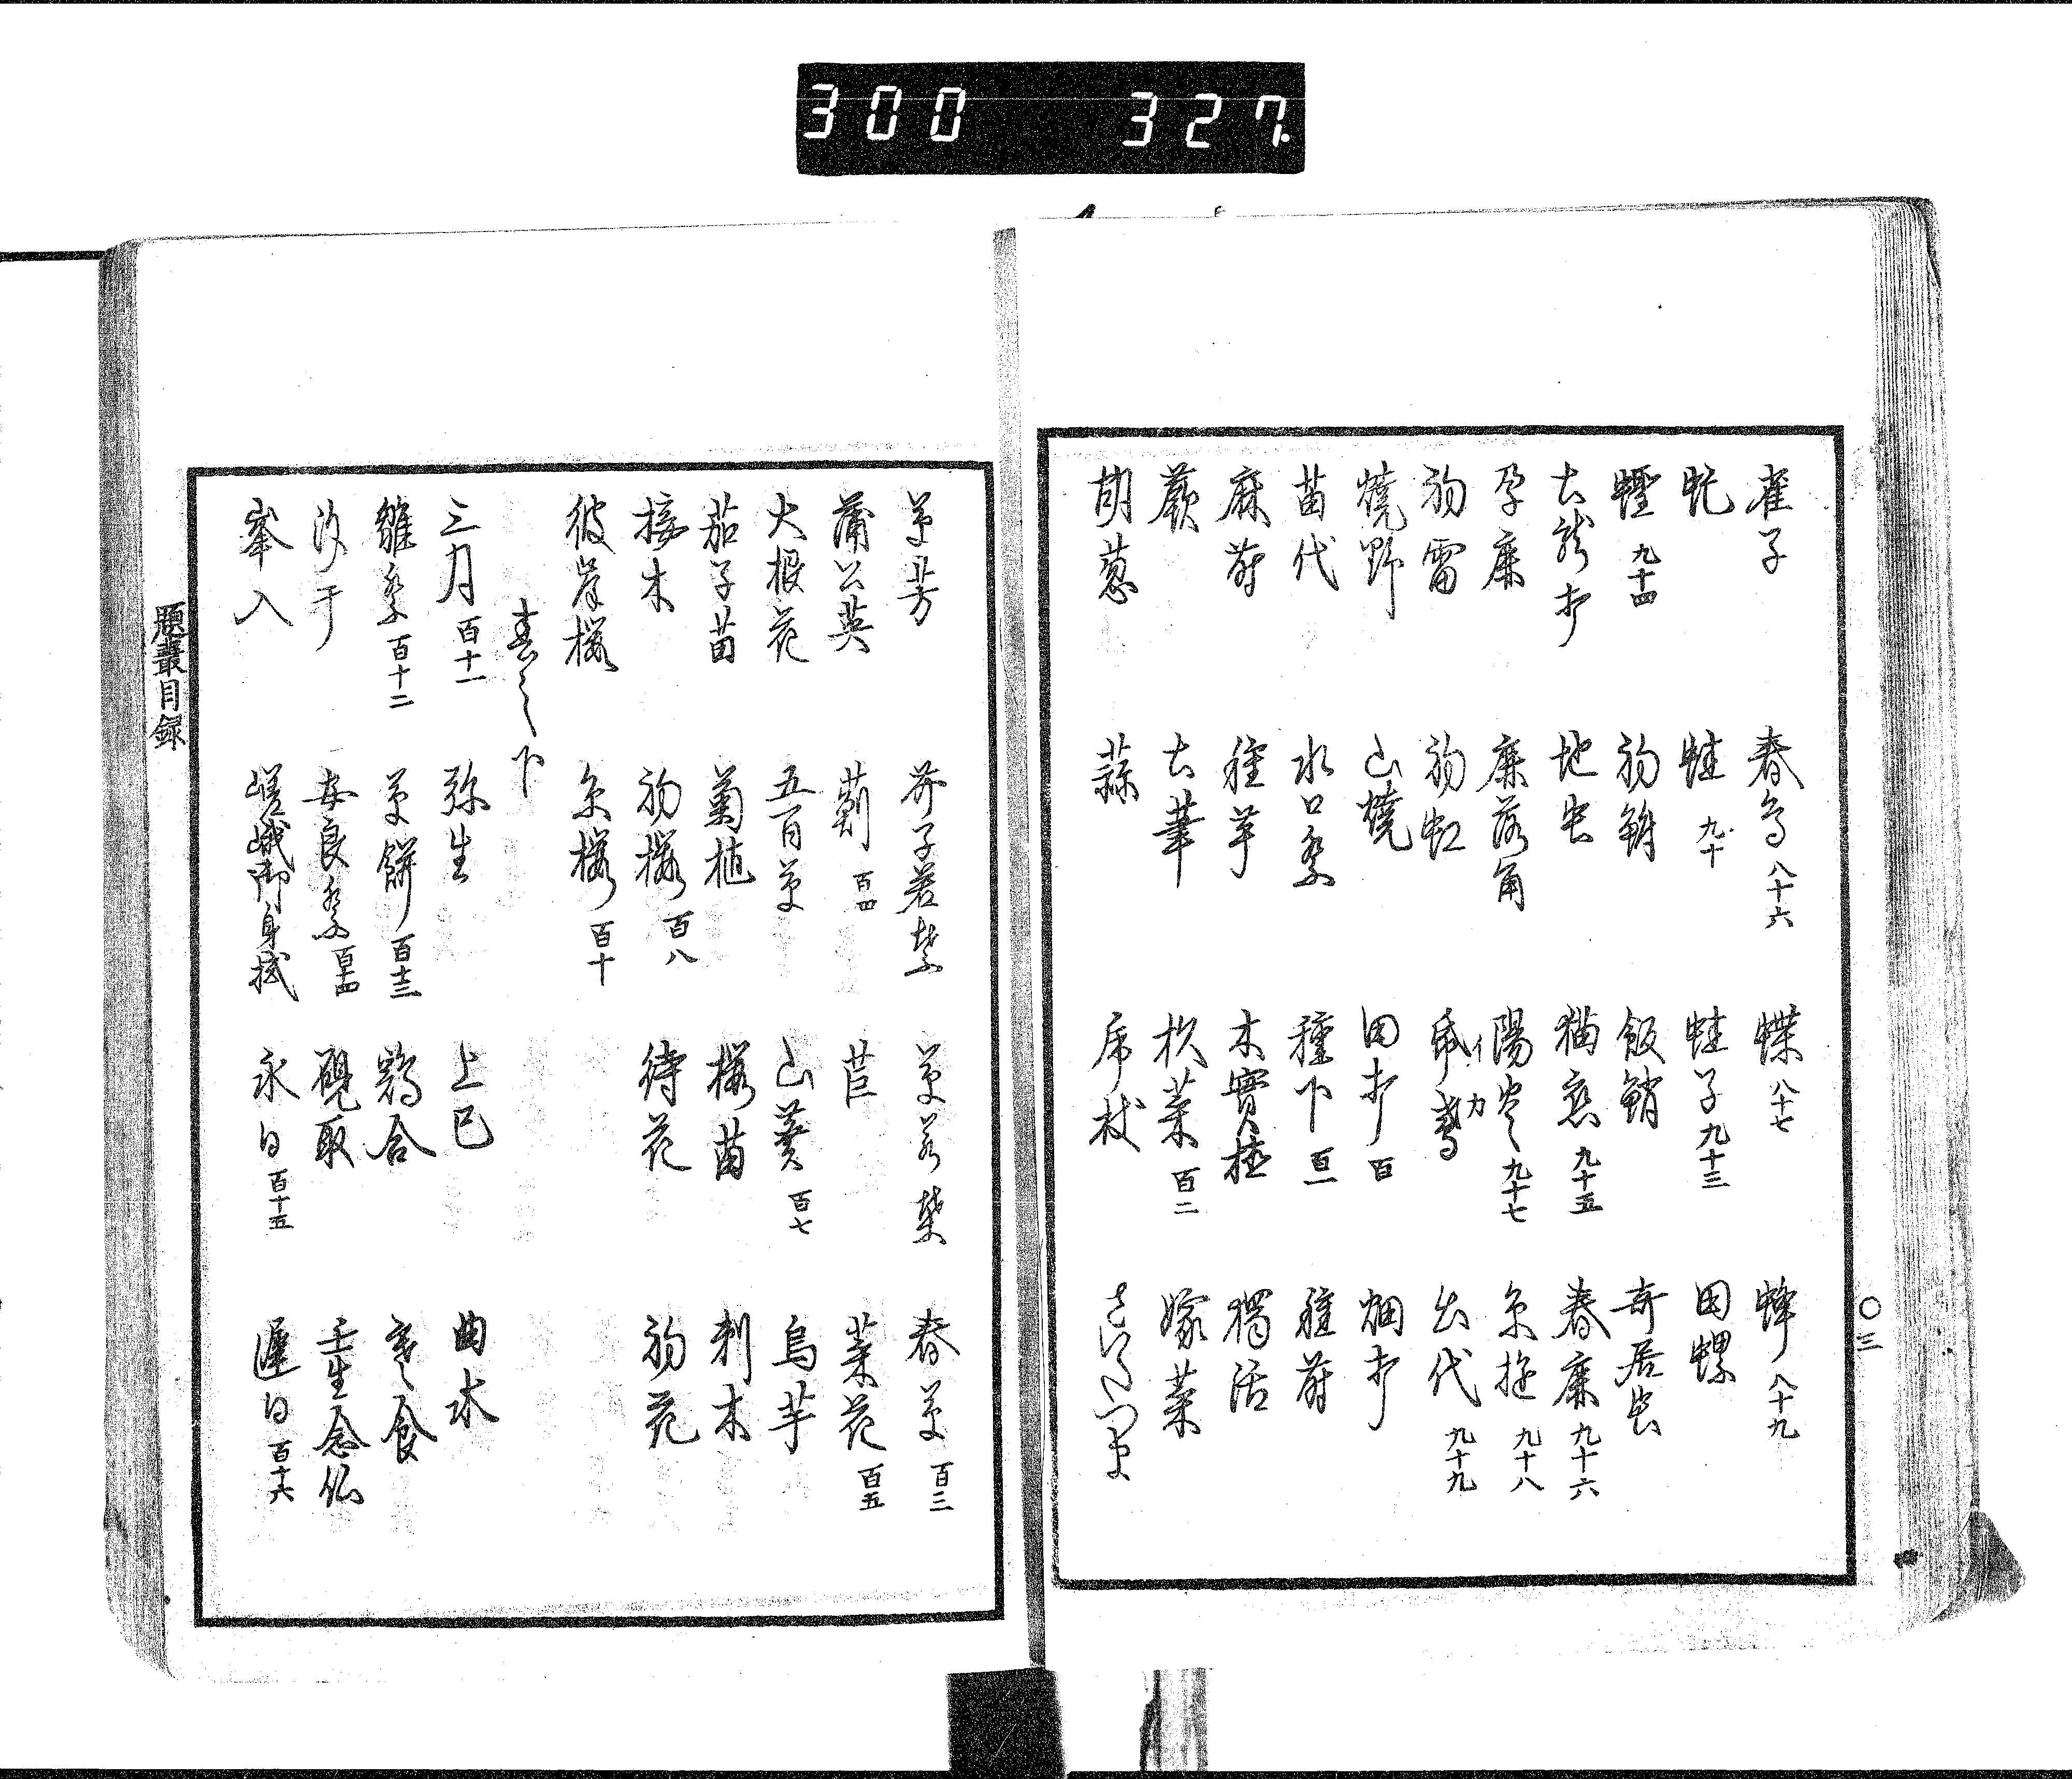 300 327
〇三
雀子 春鳥 八十六 蝶 八十七 蜂 八十九
虻 蛙 九十 蛙子 九十三 田螺
蟶 九十四 初鮒 飯鮹 寄居虫
土龍打 地虫 猫恋 九十五 春鹿 九十六
孕鹿 鹿落角 陽炎 九十七 糸遊 九十八
初雷 初虹 紙鳶 イカ 出代 九十九
焼野 山焼 田打 百 畑打
苗代 水口祭 種下 百一 種蒔
麻蒔 種芋 木實植 獨活
蕨 土筆 杉菜 百二 嫁菜
胡葱 蒜 虎杖 さいたつま
草芳 芥子若葉 草若葉 春草 百三
蒲公英 薊 百四 苣 菜花 百五
大根花 五百草 山葵 百七 烏芋
茄子苗 菊植 桜苗 刺木
接木 初桜 百八 待花 初花
彼岸桜 糸桜 百十
春之下
三月 百十一 弥生 上巳 曲水
雛祭 百十二 草餅 百十三 鶏合 寒食
汐干 安良祭 百十四 壬生念仏
峯入 嵯峨御身拭 永日 百十五 遅日 百十六
題叢目録